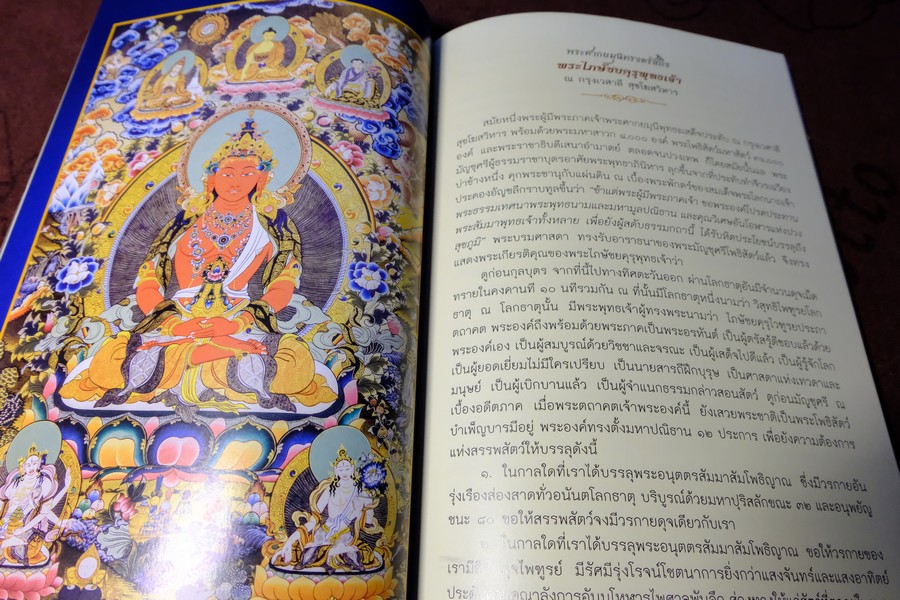 พระศากยมุนีตรัสถึง
พระไภษัชยคุรุพุทธเจ้า
ณ กรุงเวสาลี สุขโฆสวิหาร
สมัยหนึ่งพระผู้มีพระภาคเจ้าพระศากยมุนีพุทธะเสด็จประทับ ณ กรุงเวสาลี
สุขโฆสวิหาร พร้อมด้วยพระมหาสาวก ๘,๐๐๐ องค์ พระโพธิสัตว์มหาสัตว์ ๓๖,๐๐๐
องค์ และพระราชาธิบดีเสนาอำมาตย์ ตลอดจนปวงเทพ ก็โดยสมัยนั้นแล พระ
มัญชุศรีผู้ธรรมราชาบุตรอาศัยพระพุทธาภินิหาร ลุกขึ้นจากที่ประทับทำจีวรเฉวียง
บ่าข้างหนึ่ง คุกพระชานุกับแผ่นดิน ณ เบื้องพระพักตร์ของสมเด็จพระโลกนาถเจ้า
ประคองอัญชลีกราบทูลขึ้นว่า “ข้าแต่พระผู้มีพระภาคเจ้า ขอพระองค์โปรดประทาน
พระธรรมเทศนาพระพุทธนามและมหามูลปณิธาน และคุณวิเศษอันโอฬารแห่งปวง
พระสัมมาพุทธเจ้าทั้งหลาย เพื่อยังผู้สดับธรรมกถานี้ ได้รับหิตประโยชน์บรรลุถึง
สุขภูมิ” พระบรมศาสดา ทรงรับอาราธนาของพระมัญชุศรีโพธิสัตว์แล้ว จึงทรง
แสดงพระเกียรติคุณของพระไภษัชยคุรุพุทธเจ้าว่า
ดูก่อนกุลบุตร จากที่นี้ไปทางทิศตะวันออก ผ่านโลกธาตุอันมีจำนวนดุจเม็ด
ทรายในคงคานที ๑๐ นทีรวมกัน ณ ที่นั้นมีโลกธาตุหนึ่งนามว่า วิสุทธิไพฑูรยโลก
ธาตุ ณ โลกธาตุนั้น มีพระพุทธเจ้าผู้ทรงพระนามว่า ไภษัชยคุรุไวฑูรยประภา
ตถาคต พระองค์ถึงพร้อมด้วยพระภาคเป็นพระอรหันต์ เป็นผู้ตรัสรู้ดีชอบแล้วด้วย
พระองค์เอง เป็นผู้สมบูรณ์ด้วยวิชชาและจรณะ เป็นผู้เสด็จไปดีแล้ว เป็นผู้รู้จักโลก
เป็นผู้ยอดเยี่ยมไม่มีใครเปรียบ เป็นนายสารถีฝึกบุรุษ เป็นศาสดาแห่งเทวดาและ
มนุษย์ เป็นผู้เบิกบานแล้ว เป็นผู้จำแนกธรรมกล่าวสอนสัตว์ ดูก่อนมัญชุศรี ณ
เบื้องอดีตภาค เมื่อพระตถาคตเจ้าพระองค์นี้ ยังเสวยพระชาติเป็นพระโพธิสัตว์
บำเพ็ญบารมีอยู่ พระองค์ทรงตั้งมหาปณิธาน ๑๒ ประการ เพื่อยังความต้องการ
แห่งสรรพสัตว์ให้บรรลุดังนี้
๑. ในกาลใดที่เราได้บรรลุพระอนุตตรสัมมาสัมโพธิญาณ ซึ่งมีวรกายอัน
รุ่งเรืองส่องสาดทั่วอนันตโลกธาตุ บริบูรณ์ด้วยมหาปุริสลักขณะ ๓๒ และอนุพยัญ
ชนะ ๘๐ ขอให้สรรพสัตว์จงมีวรกายดุจเดียวกับเรา
ในกาลใดที่เราได้บรรลุพระอนุตตรสัมมาสัมโพธิญาณ ขอให้วรกายของ
เรามีสี ไพฑูรย์ มีรัศมีรุ่งโรจน์โชตนาการยิ่งกว่าแสงจันทร์และแสงอาทิตย์